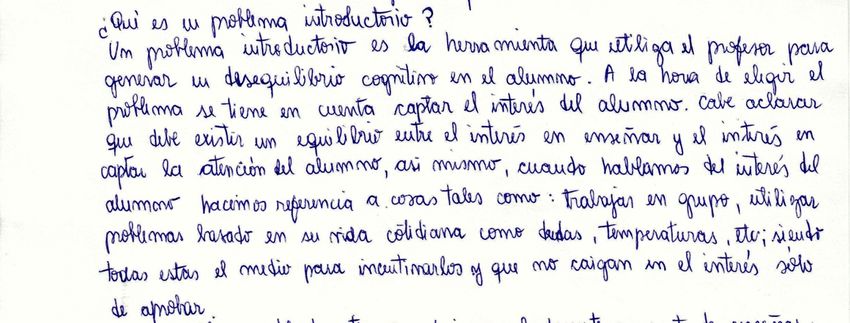 ¿Qué es un problema introductorio?
Un problema introductorio es la herramienta que utiliza el profesor para
generar un desequilibrio cognitivo en el alumno. A la hora de elegir el
problema se tiene en cuenta captar el interés del alumno. Cabe aclarar
que debe existir un equilibrio entre el interés en enseñar y el interés en
captar la atención del alumno, asi mismo, cuando hablamos del interés del
alumno hacemos referencia a cosas tales como: trabajar en grupo, utilizar
problemas basado en su vida cotidiana como deudas, temperaturas, etc; siendo
todas estas el medio para incentivarlos y que no caigan en el interés sólo
de aprobar.